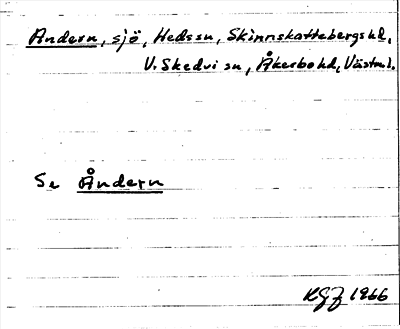 Andern, sjö, Hedssn, Skinnskattebergs hd,
V. Skedvi sn, Åkerbo hd, Västml.
Se Åndern
1966